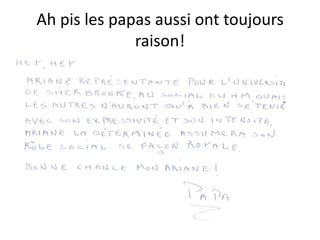 Ah pis les papas aussi ont toujours
raison!
HEY, HEY
ARIANE REPRÉSENTANTE POUR L'UNIVERSITÉ
DE SHERBROOKE, AU SOCIAL DU HM, OUAIS
LES AUTRES N'AURONT QU'À BIEN SE TENIR
AVEC SON EXPRESSIVITÉ ET SON INTENSITÉ,
ARIANE LA DÉTERMINÉE ASSUMERA SON
RÔLE SOCIAL DE FAÇON ROYALE.
BONNE CHANCE MON ARIANE!
PAPA